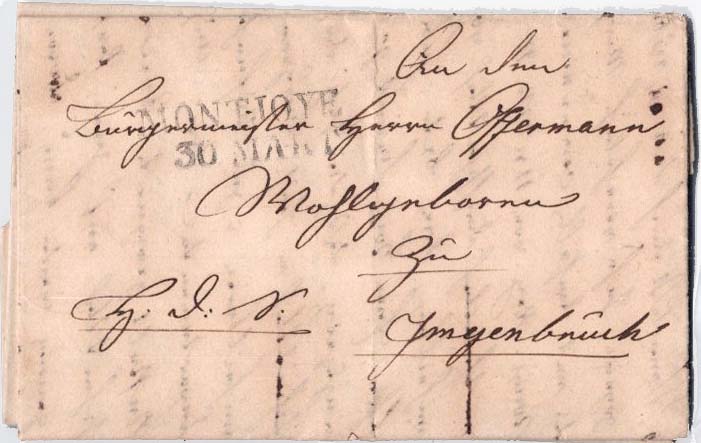 An den
MONTJOYE
Bürgermeister Herrn Offermann
30 MÄRZ
Wohlgeboren
zu
H. d. S.
Imgenbruch